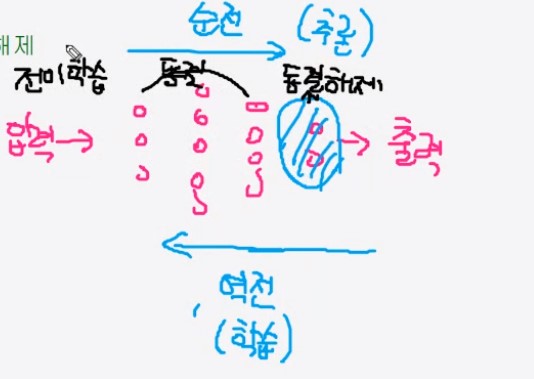 해제
순전 (추론)
전미학습 동결 동결해제
입력 → → 출력
역전
(학습)